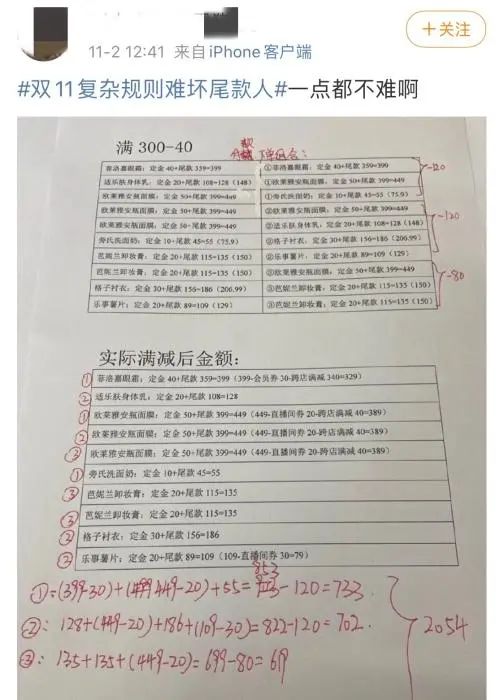 11-2 12:41 来自iPhone客户端
+关注
#双11复杂规则难坏尾款人#一点都不难啊
满 300-40
下单组合:
菲洛嘉眼霜:定金 40+尾款 359=399 ①菲洛嘉眼霜:定金 40+尾款 359=399
适乐肤身体乳:定金 20+尾款 108=128(148) ①欧莱雅安瓶面膜:定金 50+尾款 399=449
欧莱雅安瓶面膜:定金 50+尾款 399=449 ①旁氏洗面奶:定金 10+尾款 45=55(75.9)
-120
欧莱雅安瓶面膜:定金 50+尾款 399=449 ②欧莱雅安瓶面膜:定金 50+尾款 399=449
欧莱雅安瓶面膜:定金 50+尾款 399=449 ②适乐肤身体乳:定金 20+尾款 108=128(148)
旁氏洗面奶:定金 10+尾款 45=55(75.9) ②格子衬衣:定金 30+尾款 156=186(206.99)
芭妮兰卸妆膏:定金 20+尾款 115=135(150) ②乐事薯片:定金 20+尾款 89=109(129)
-120
芭妮兰卸妆膏:定金 20+尾款 115=135(150) ③欧莱雅安瓶面膜:定金 50+尾款 399=449
格子衬衣:定金 30+尾款 156=186(206.99) ③芭妮兰卸妆膏:定金 20+尾款 115=135(150)
乐事薯片:定金 20+尾款 89=109(129) ③芭妮兰卸妆膏:定金 20+尾款 115=135(150)
-80
实际满减后金额:
① 菲洛嘉眼霜:定金 40+尾款 359=399(399-会员券 30-跨店满减 340=329)
② 适乐肤身体乳:定金 20+尾款 108=128
① 欧莱雅安瓶面膜:定金 50+尾款 399=449(449-直播间券 20-跨店满减 40=389)
② 欧莱雅安瓶面膜:定金 50+尾款 399=449(449-直播间券 20-跨店满减 40=389)
③ 欧莱雅安瓶面膜:定金 50+尾款 399=449(449-直播间券 20-跨店满减 40=389)
① 旁氏洗面奶:定金 10+尾款 45=55
③ 芭妮兰卸妆膏:定金 20+尾款 115=135
③ 芭妮兰卸妆膏:定金 20+尾款 115=135
② 格子衬衣:定金 30+尾款 156=186
② 乐事薯片:定金 20+尾款 89=109(109-直播间券 30=79)
①=(399-30)+(449-20)+55=853-120=733.
②:128+(449-20)+186+(109-30)=822-120=702.
③:135+135+(449-20)=699-80=619
2054